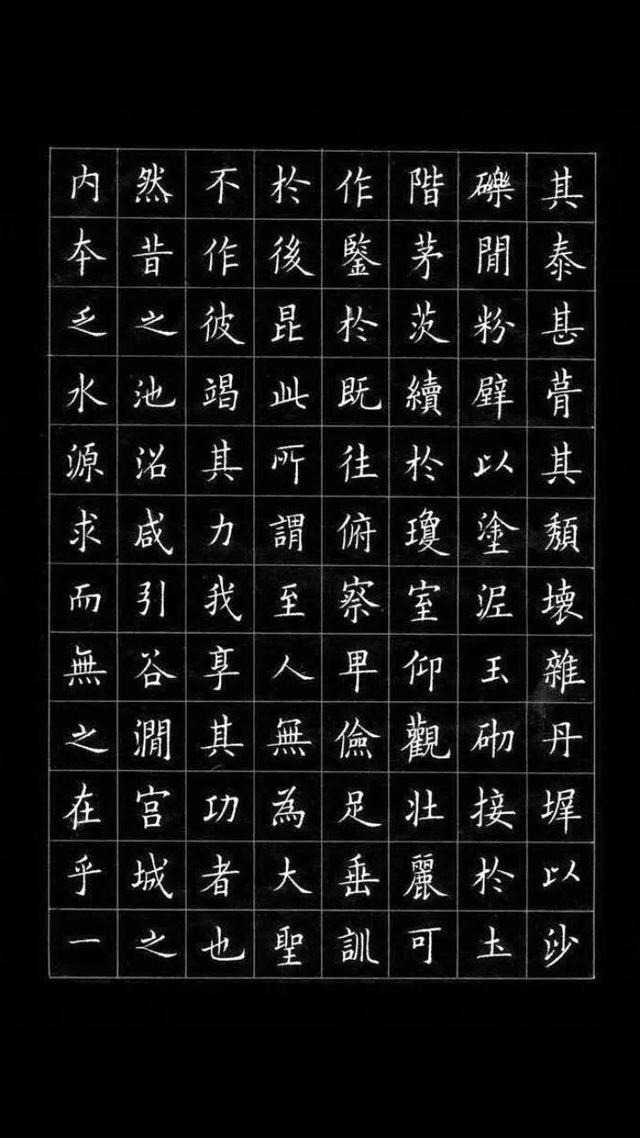 其泰甚葺其頹壞雜丹墀以沙
礫閒粉壁以塗泥玉砌接於土
階茅茨續於瓊室仰觀壯麗可
作鑒於既往俯察卑儉足垂訓
於後昆此所謂至人無為大聖
不作彼竭其力我享其功者也
然昔之池沼咸引谷澗宮城之
内本乏水源求而無之在乎一